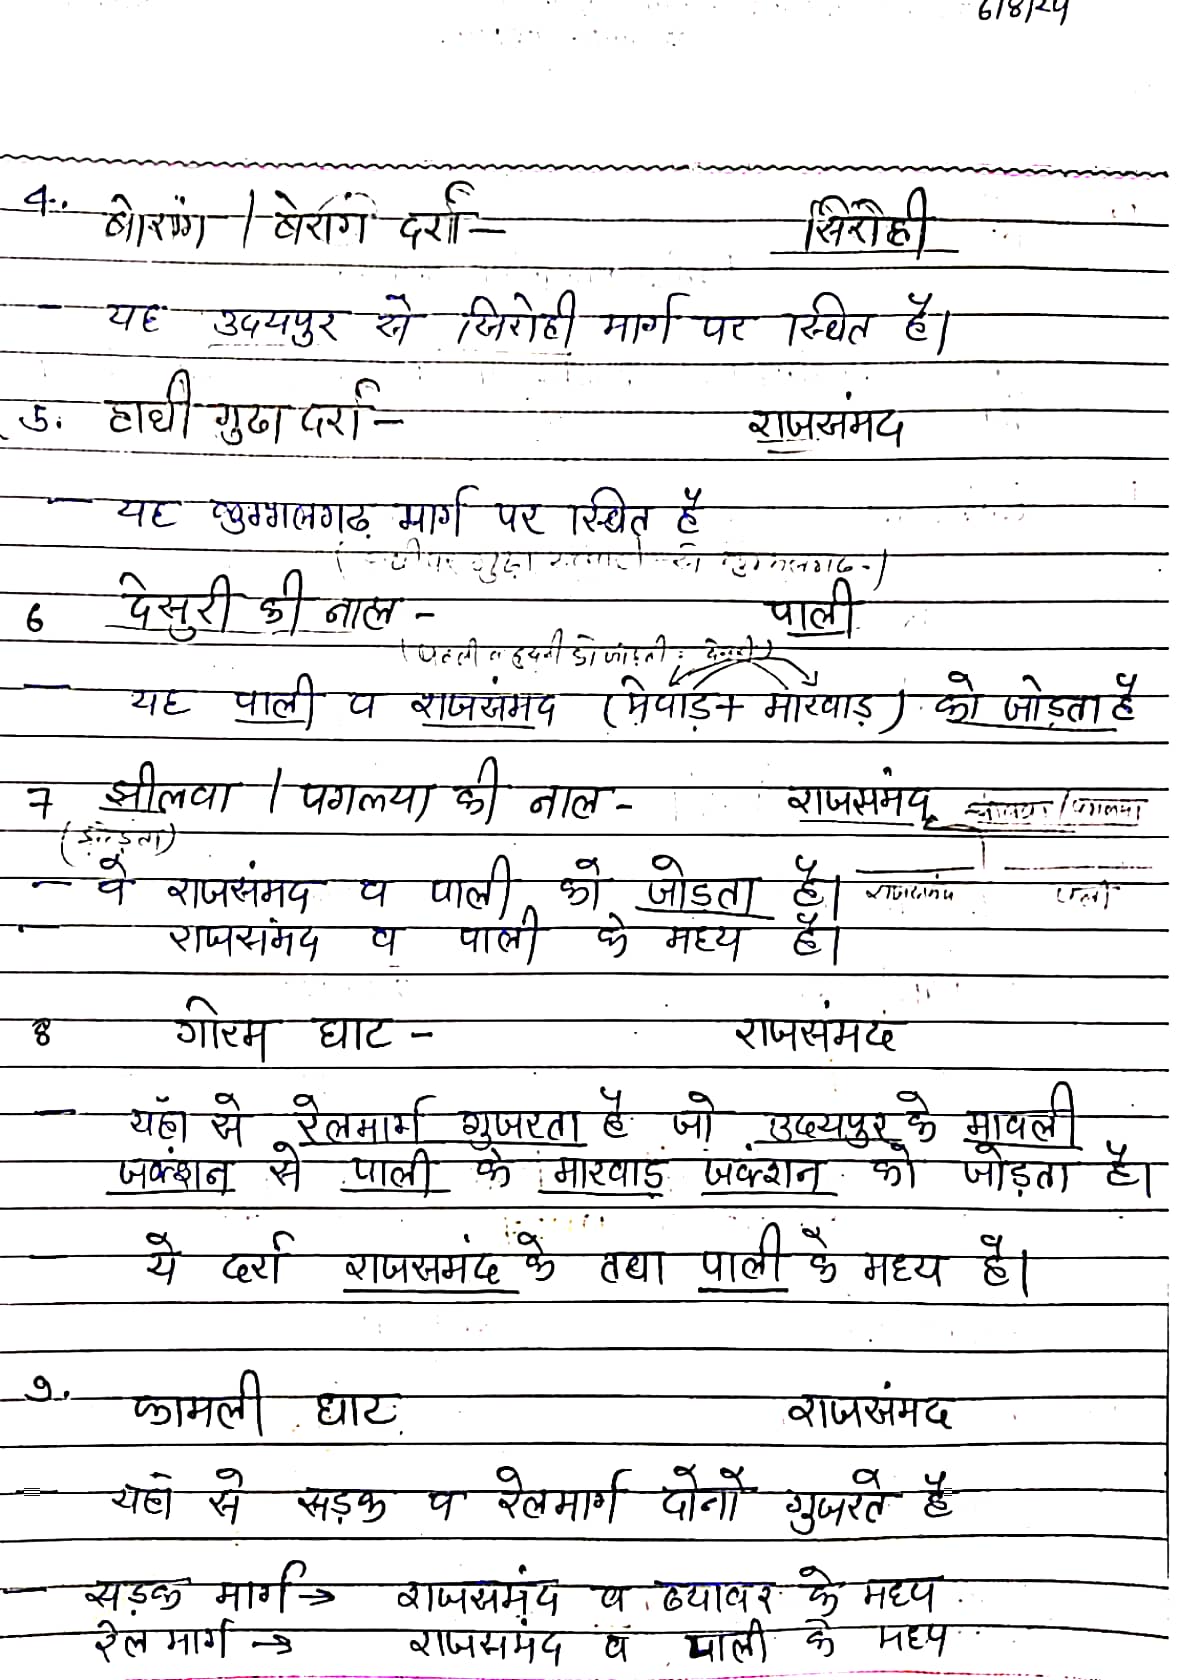 6/8/24
4. बोरांग / बेरांग दर्रा – सिरोही
– यह उदयपुर से सिरोही मार्ग पर स्थित है।
5. हाथी गुढा दर्रा – राजसंमद
– यह कुम्भलगढ़ मार्ग पर स्थित है
6 देसुरी की नाल – पाली
– यह पाली व राजसंमद (मेवाड़ + मारवाड़) को जोड़ता है
7 झीलवा / पगल्या की नाल – राजसमंद
– ये राजसंमद व पाली को जोडता है।
राजसमंद पाली
– राजसंमद व पाली के मध्य है।
8 गोरम घाट – राजसंमद
– यहाँ से रेलमार्ग गुजरता है जो उदयपुर के मावली
जक्शंन से पाली के मारवाड़ जंक्शन को जोड़ता है।
– ये दर्रा राजसमंद के तथा पाली के मध्य है।
9. कामली घाट राजसंमद
– यहाँ से सड़क व रेलमार्ग दोनों गुजरते है
– सड़क मार्ग → राजसमंद व ब्यावर के मध्य
रेल मार्ग → राजसमंद व पाली के मध्य